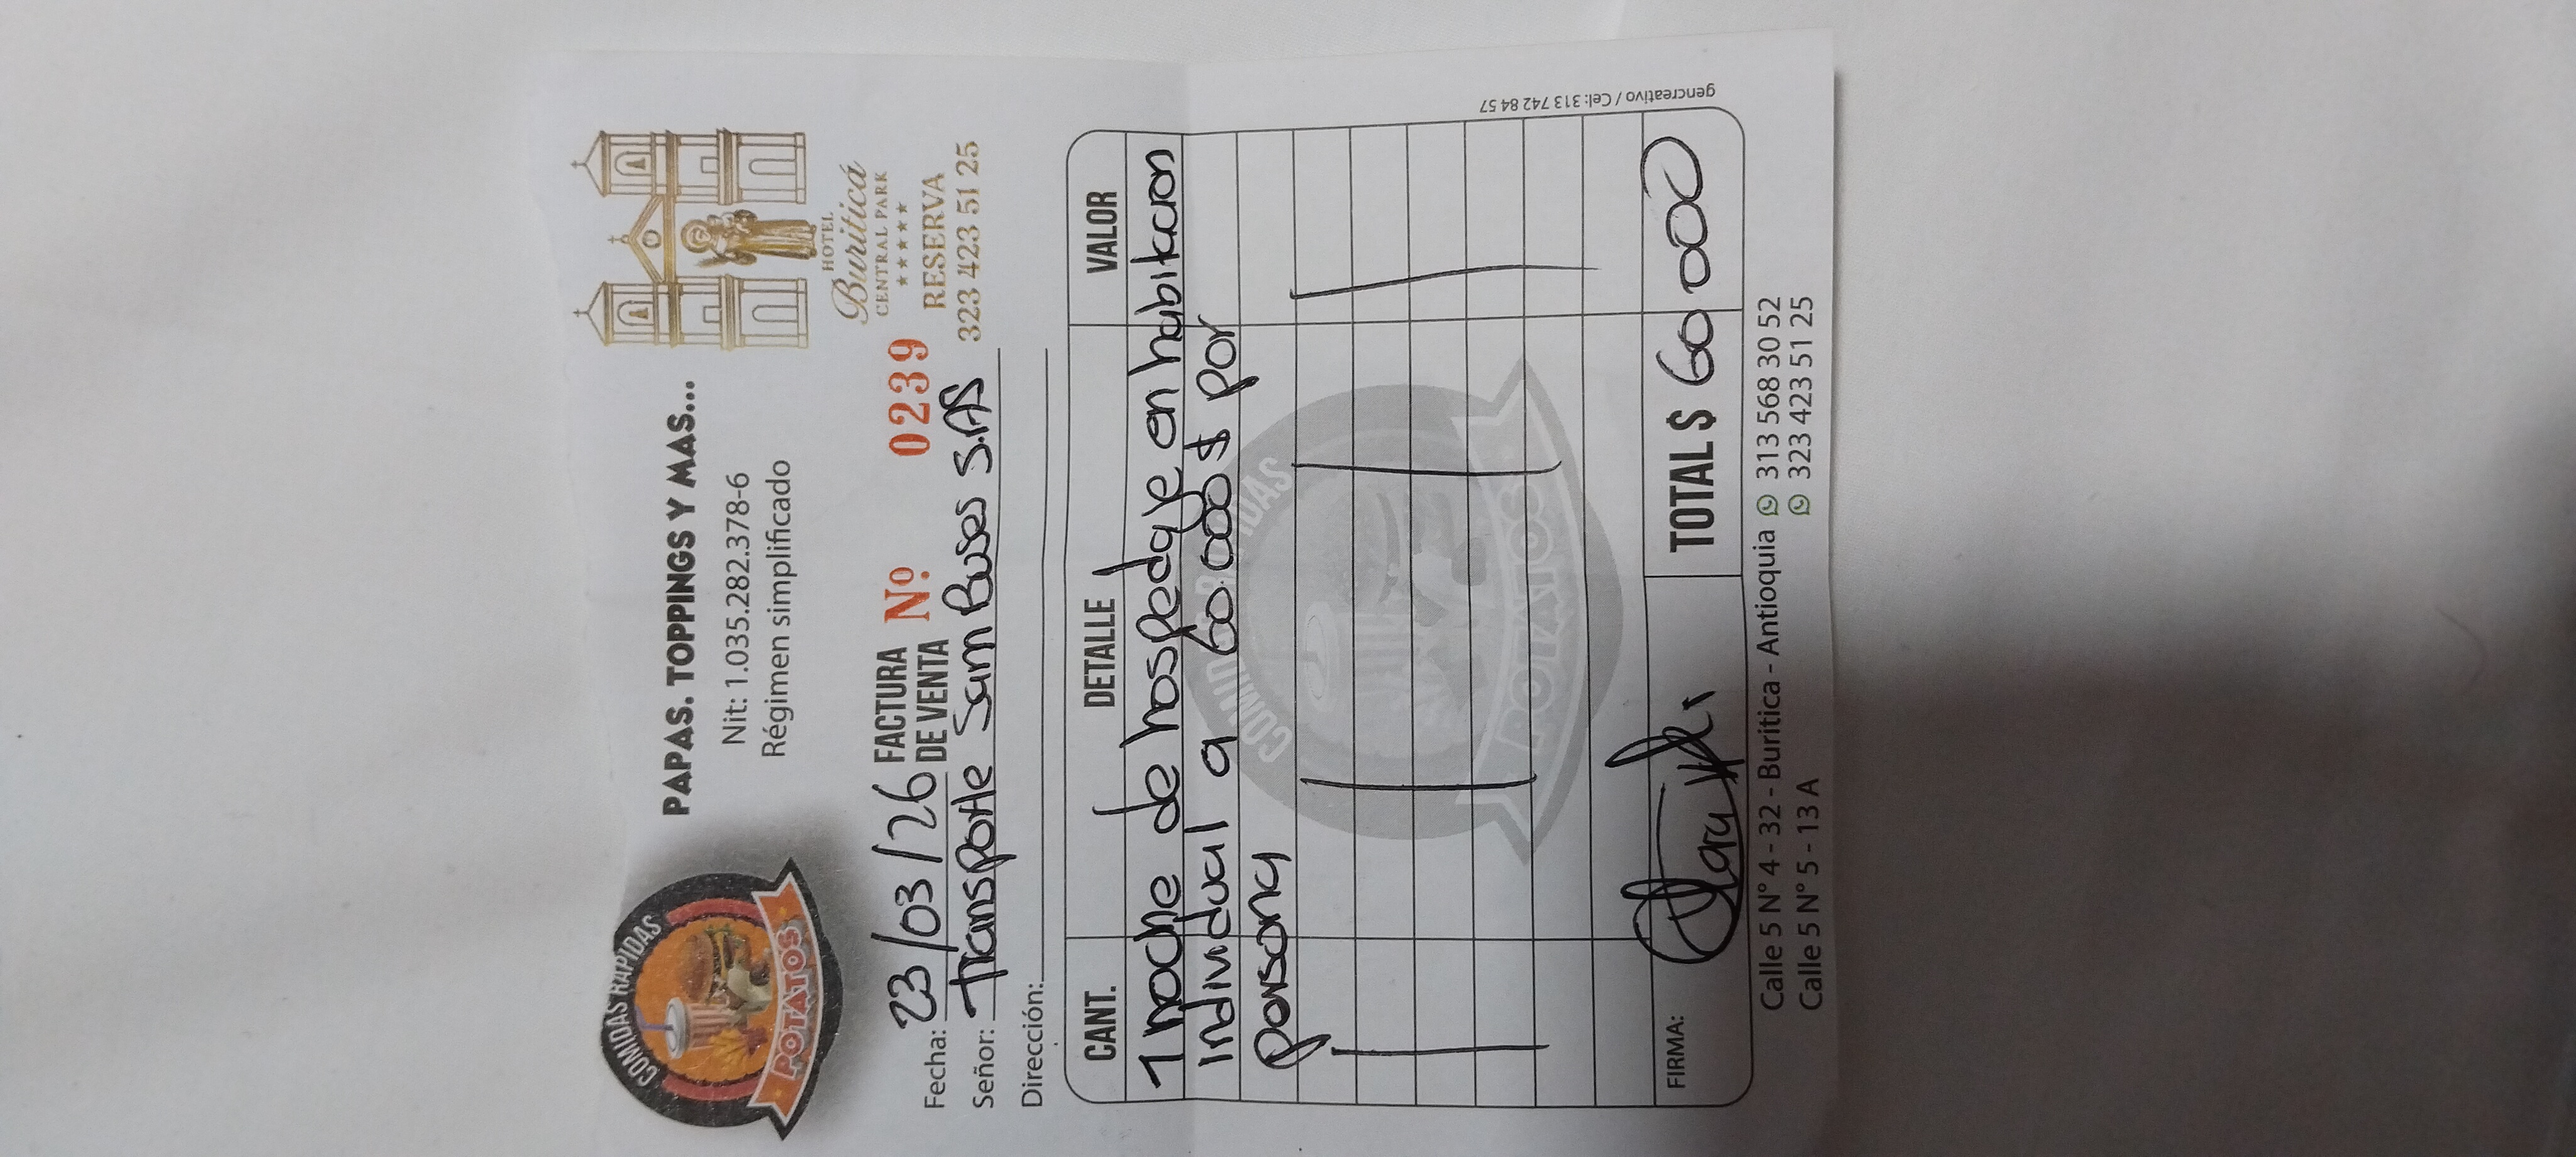 COMIDAS RAPIDAS
POTATOS
PAPAS. TOPPINGS Y MAS...
Nit: 1.035.282.378-6
Régimen simplificado
HOTEL
Buriticá
CENTRAL PARK
RESERVA
323 423 51 25
Fecha: 23/03/26 FACTURA DE VENTA Nº. 0239
Señor: Transporte Sam Buses S.AS
Dirección:
CANT. DETALLE VALOR
1 noche de hospedaje en habitacion
individual a 60.000$ por
persona
COMIDAS RAPIDAS
POTATOS
FIRMA: TOTAL $ 60 000
Calle 5 N° 4 - 32 - Buritica - Antioquia 313 568 30 52
Calle 5 N° 5 - 13 A 323 423 51 25
gencreativo / Cel: 313 742 84 57